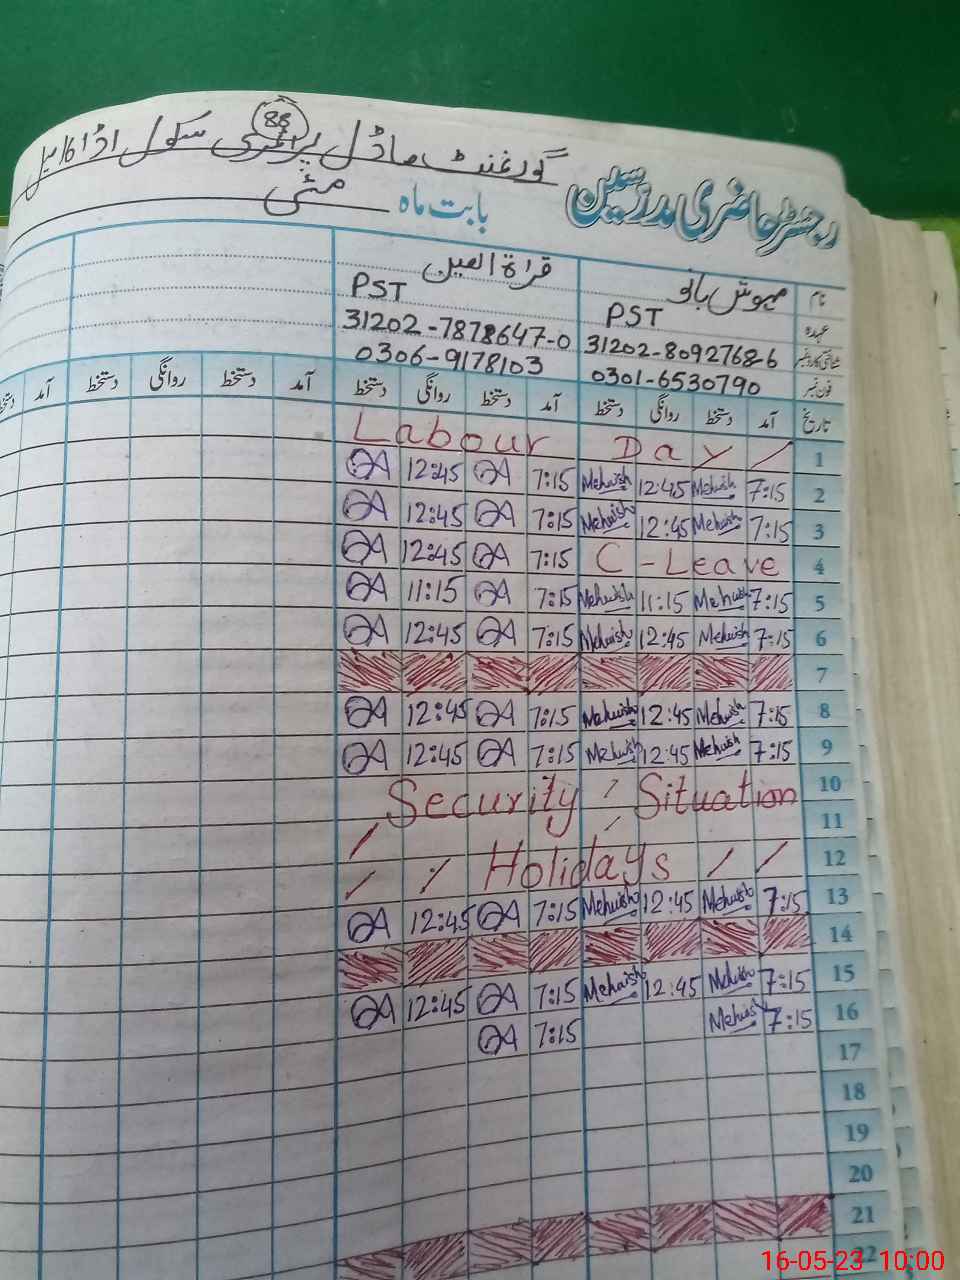 گورنمنٹ ماڈل پرائمری سکول اڈا
88
رجسٹر حاضری مدرسین
بابت ماہ مئی
نام مہوش بانو قراۃ العین
عہدہ PST PST
شناختی کارڈ نمبر 31202-8092768-6 31202-7878647-0
فون نمبر 0301-6530790 0306-9178103
تاریخ آمد دستخط روانگی دستخط آمد دستخط روانگی دستخط آمد دستخط روانگی دستخط آمد دستخط
Labour Day 1
QA 12:45 QA 7:15 Mehwish 12:45 Mehwish 7:15 2
QA 12:45 QA 7:15 Mehwish 12:45 Mehwish 7:15 3
QA 12:45 QA 7:15 C-Leave 4
QA 11:15 QA 7:15 Mehwish 11:15 Mehwish 7:15 5
QA 12:45 QA 7:15 Mehwish 12:45 Mehwish 7:15 6
7
QA 12:45 QA 7:15 Mehwish 12:45 Mehwish 7:15 8
QA 12:45 QA 7:15 Mehwish 12:45 Mehwish 7:15 9
Security Situation 10
11
Holidays 12
QA 12:45 QA 7:15 Mehwish 12:45 Mehwish 7:15 13
14
QA 12:45 QA 7:15 Mehwish 12:45 Mehwish 7:15 15
QA 7:15 Mehwish 7:15 16
17
18
19
20
21
22
16-05-23 10:00